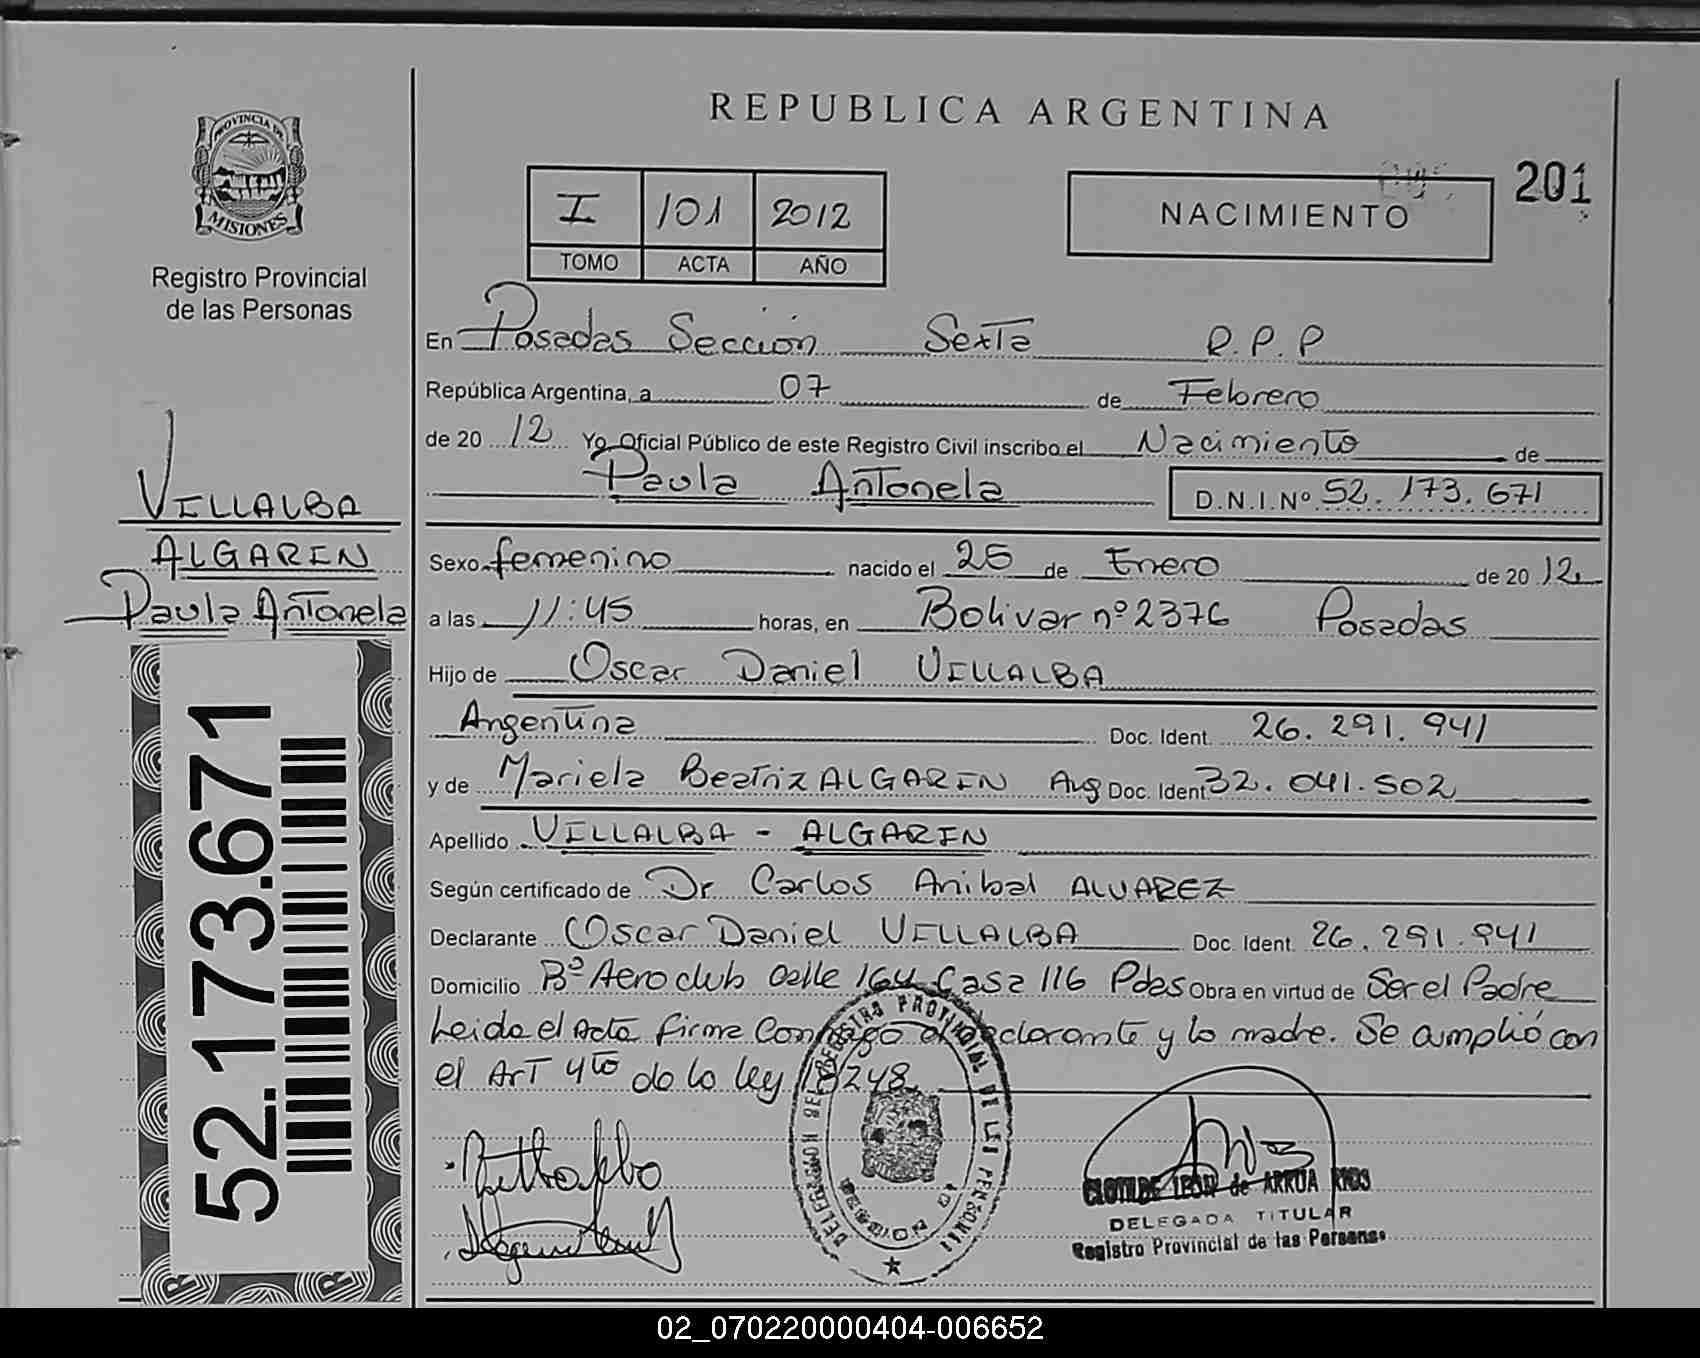 REPUBLICA ARGENTINA
PROVINCIA DE
MISIONES
Registro Provincial
de las Personas
I 101 2012
TOMO ACTA AÑO
NACIMIENTO
201
En Posadas Sección Sexta R.P.P
República Argentina, a 07 de Febrero
de 20 12 Yo Oficial Público de este Registro Civil inscribo el Nacimiento de
Paula Antonela D.N.I.Nº 52.173.671
VILLALBA
ALGARIN
Paula Antonela
52.173.671
Sexo femenino nacido el 25 de Enero de 20 12
a las 11:45 horas, en Bolivar nº 2376 Posadas
Hijo de Oscar Daniel VILLALBA
Argentina Doc. Ident. 26.291.941
y de Mariela Beatriz ALGARIN Arg Doc. Ident 32.041.502
Apellido VILLALBA - ALGARIN
Según certificado de Dr Carlos Anibal ALVAREZ
Declarante Oscar Daniel VILLALBA Doc. Ident. 26.291.941
Domicilio Bº Aeroclub Calle 164 Casa 116 Pdas Obra en virtud de Ser el Padre
Leida el Acta firma Conmigo el declarante y la madre. Se cumplió con
el Art 4to de la ley 18248
DELEGACION DEL REGISTRO PROVINCIAL DE LAS PERSONAS
CLOTILDE LEON de ARRUA RIOS
DELEGADA TITULAR
Registro Provincial de las Personas
02_070220000404-006652